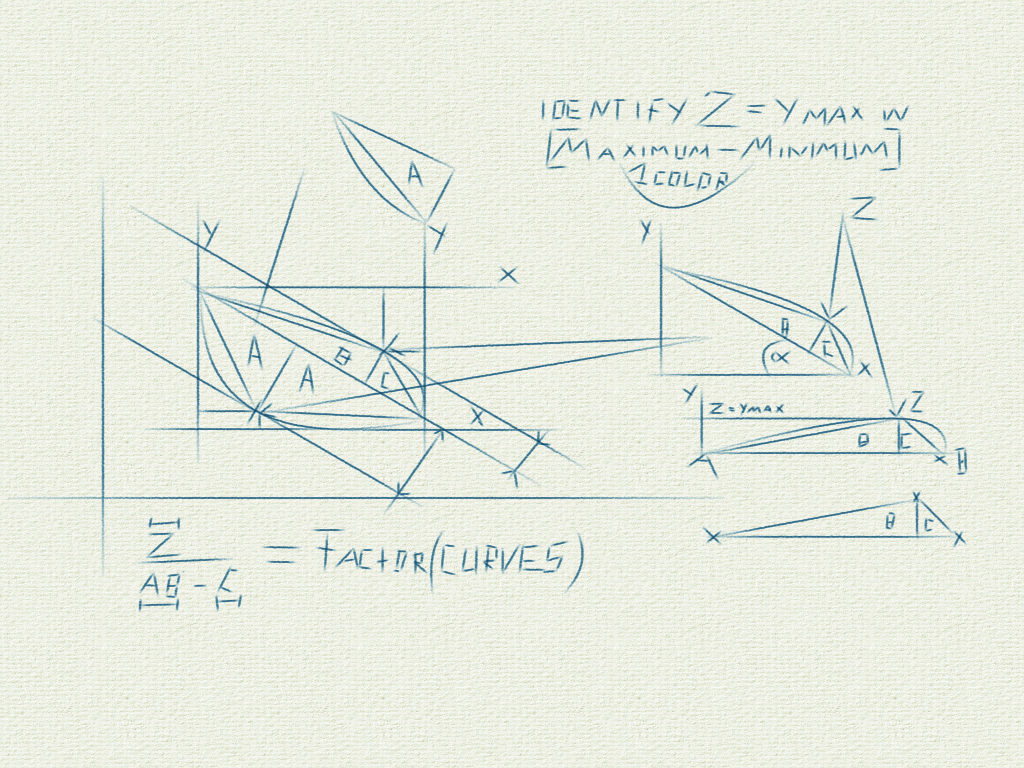 IDENTIFY Z = YMAX IN
[MAXIMUM-MINIMUM]
1COLOR
A
Y
Y
X
A
A
B
C
X
Z
Y
B
C
α
X
Y
Z=YMAX
Z
B
C
A
X
B
X
X
B
C
X
Z
AB - C
= FACTOR(CURVES)